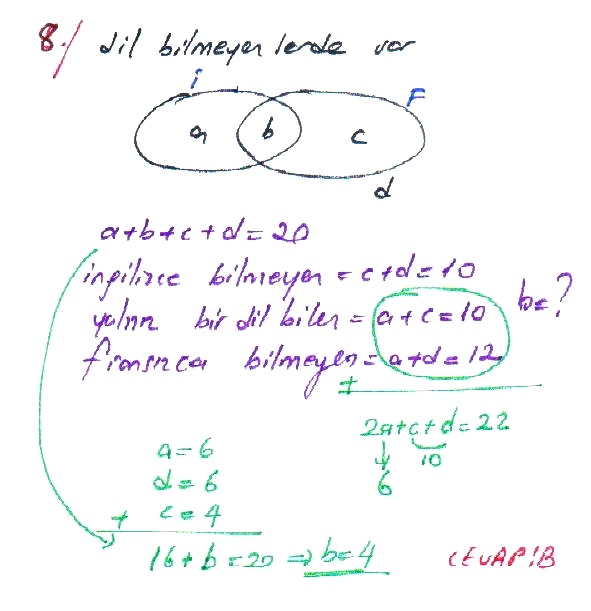 8./ dil bilmeyenlerde var
i F
a b c
d
a+b+c+d=20
ingilizce bilmeyen = c+d=10
yalnız bir dil bilen = a+c=10 b=?
fransızca bilmeyen = a+d=12
+
2a+c+d=22
10
6
a=6
d=6
+ c=4
16+b=20 ⇒ b=4 CEVAP!B